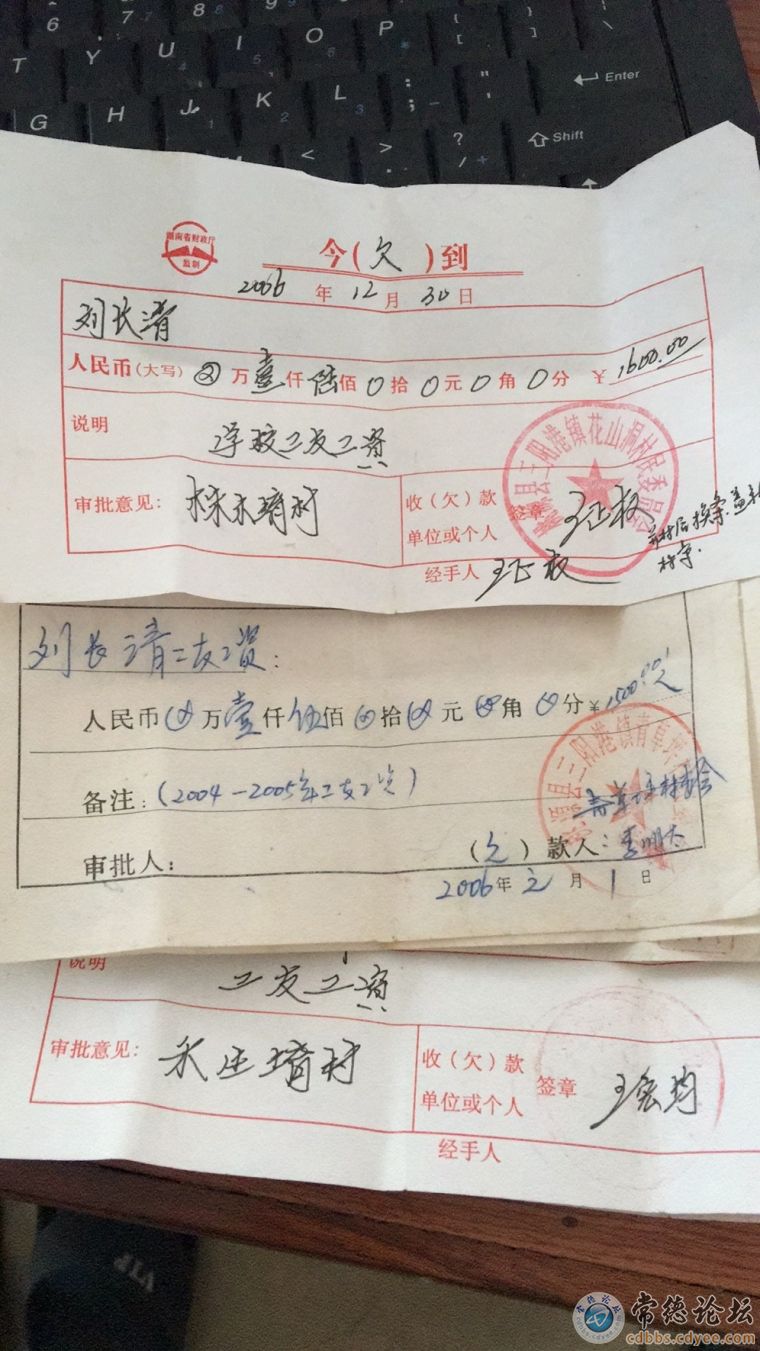 6 7 8 9 0 P
T Y U I O P
Enter
G H J K L
Shift
湖南省财政厅
监制
今(欠)到
2006 年 12 月 30 日
刘长清
人民币(大写) 〇 万 壹 仟 陆 佰 0 拾 0 元 0 角 0 分 ¥ 1600.00
说明
学校工友工资
审批意见: 株木塆村
收(欠)款
单位或个人
签章
王正权
并村后换章.盖新
村章.
经手人 王正权
三阳港镇花山洞村民委员会
刘长清工友工资:
人民币 0 万 壹 仟 伍 佰 0 拾 0 元 0 角 0 分 ¥ 1500.00元
备注: (2004-2005年工友工资)
审批人:
(欠) 款人:
2006 年 元 月 1 日
说明
工友工资
审批意见:
收(欠)款
单位或个人
签章
经手人
VTP
常德论坛
cdbbs.cdyee.com